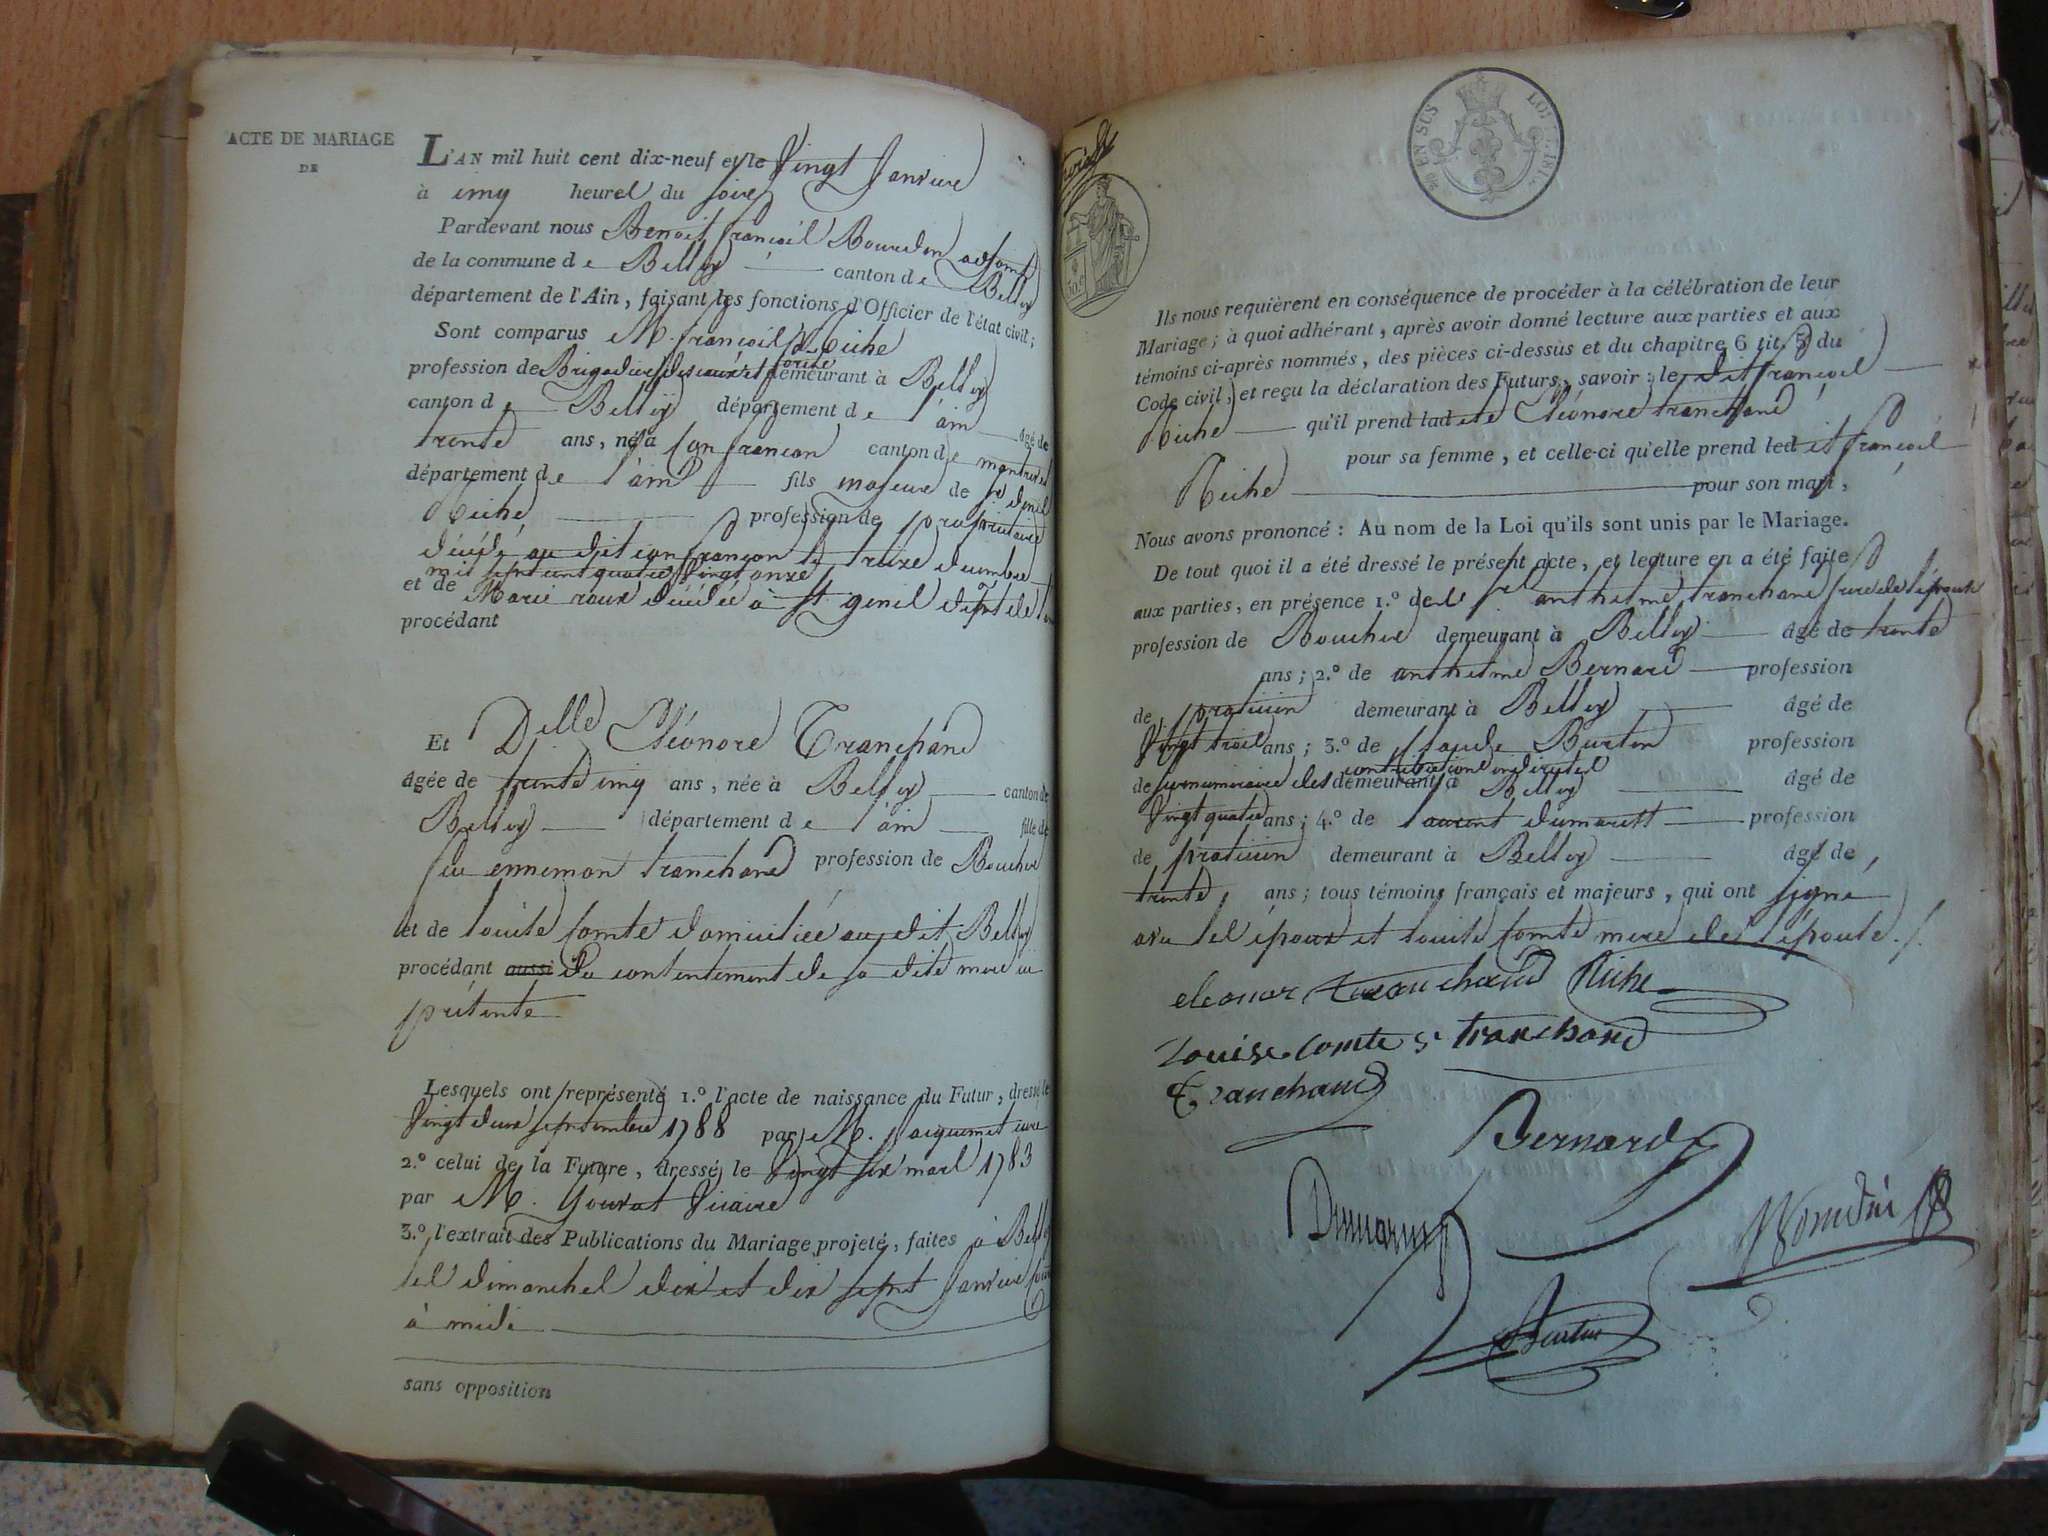 ACTE DE MARIAGE
DE
L'AN mil huit cent dix-neuf et le Vingt Janvier
à cinq heures du soir
Pardevant nous Benoit françois Bourdin adjoint
de la commune de Belley canton de Belley
département de l'Ain, faisant les fonctions d'Officier de l'état civil;
Sont comparus M. françois Riche
profession de Brigadier des eaux et forêts demeurant à Belley
canton de Belley département de l'ain âgé de
trente ans, né à Confrançon canton de montrevel
département de l'ain fils majeur de
Riche profession de propriétaire
décédé au dit confrançon le treize
mil sept cent quatre Vingt onze
et de Marie roux décédée à St genil
procédant
Et Delle Eléonore Tranchand
âgée de trente cinq ans, née à Belley canton de
Belley département de l'ain fille de
feu ennemon tranchand profession de Boucher
et de Louise Comte domiciliée au dit Belley
procédant aussi du consentement de sa dite mere ici
présente
Lesquels ont représenté 1.º l'acte de naissance du Futur, dressé le
Vingt deux septembre 1788 par M. curé
2.º celui de la Future, dressé le Vingt six mars 1783
par M. Gouvat Vicaire
3.º l'extrait des Publications du Mariage projeté, faites à Belley
les dimanches dix et dix sept Janvier
à midi
sans opposition
EN SUS LOI 181
Ils nous requièrent en conséquence de procéder à la célébration de leur
Mariage; à quoi adhérant, après avoir donné lecture aux parties et aux
témoins ci-après nommés, des pièces ci-dessus et du chapitre 6 tit. 5 du
Code civil, et reçu la déclaration des Futurs, savoir: le dit françois
Riche qu'il prend ladite Eléonore tranchand
pour sa femme, et celle-ci qu'elle prend ledit françois
Riche pour son mari,
Nous avons prononcé: Au nom de la Loi qu'ils sont unis par le Mariage.
De tout quoi il a été dressé le présent acte, et lecture en a été faite
aux parties, en présence 1.º de anthelme tranchand frere de l'épouse
profession de Boucher demeurant à Belley âgé de trente
ans; 2.º de anthelme Bernard profession
de praticien demeurant à Belley âgé de
Vingt trois ans; 3.º de Claude Burtin profession
de surnumeraire des contributions indirectes demeurant à Belley âgé de
Vingt quatre ans; 4.º de Laurent dumarest profession
de praticien demeurant à Belley âgé de
trente ans; tous témoins français et majeurs, qui ont signé
avec les époux et Louise Comte mere de l'épouse./.
eleonor tranchand Riche
Louise comte Tranchand
Tranchand
Bernard
Dumarest
Bourdin
Burtin